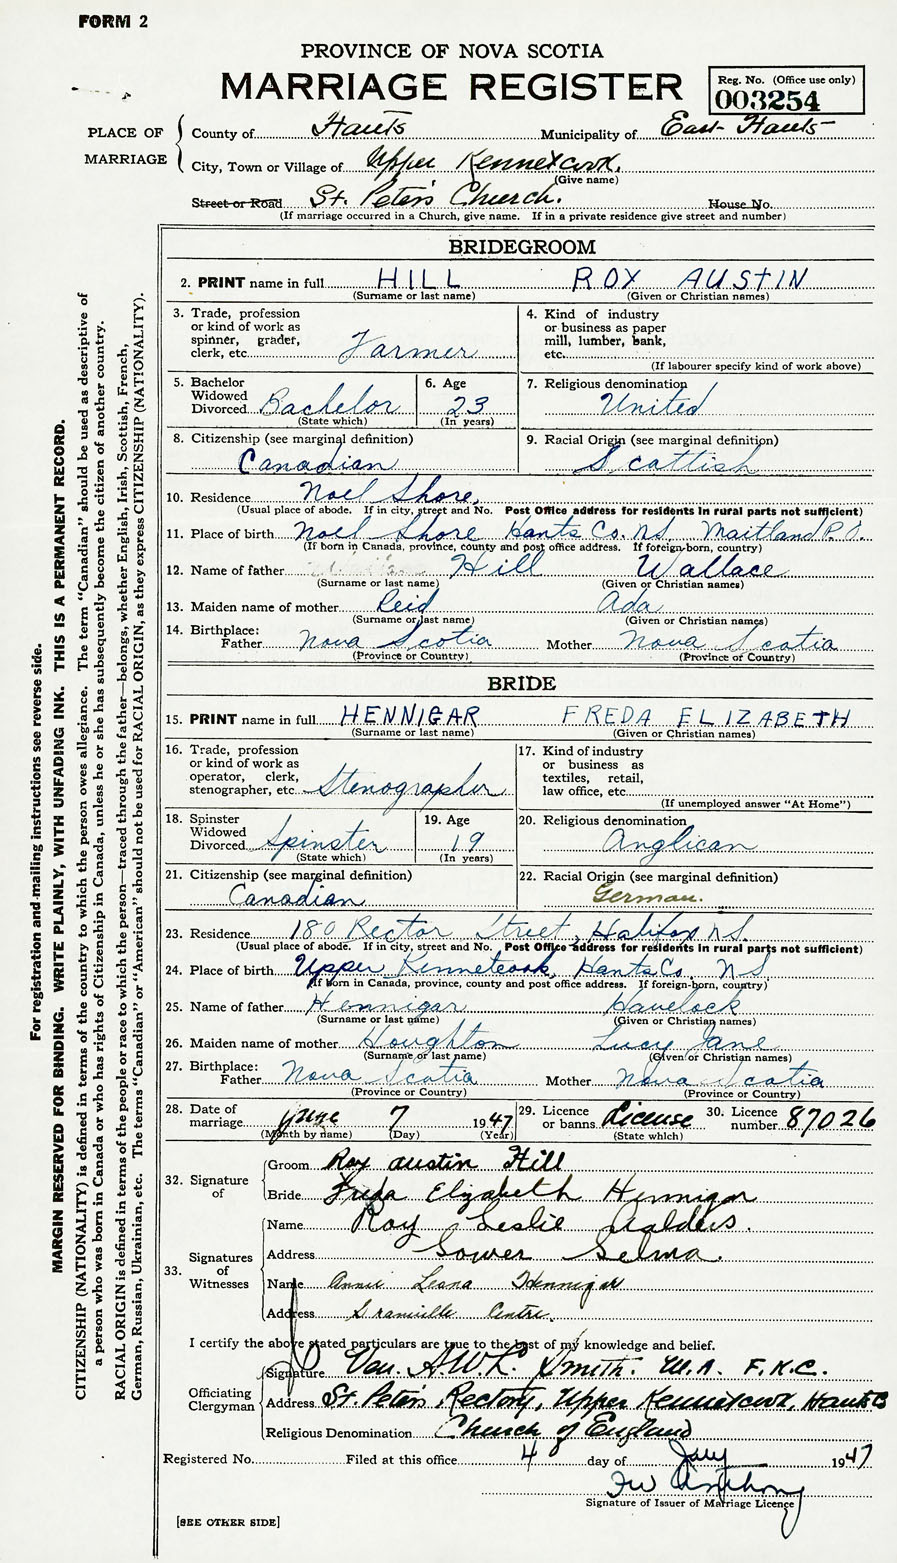 FORM 2
PROVINCE OF NOVA SCOTIA
MARRIAGE REGISTER
Reg. No. (Office use only)
003254
PLACE OF MARRIAGE
County of Hants Municipality of East Hants
City, Town or Village of Upper Kennetcook.
(Give name)
Street or Road St. Peter's Church. House No.
(If marriage occurred in a Church, give name. If in a private residence give street and number)
BRIDEGROOM
2. PRINT name in full HILL ROY AUSTIN
(Surname or last name) (Given or Christian names)
3. Trade, profession or kind of work as spinner, grader, clerk, etc. Farmer
4. Kind of industry or business as paper mill, lumber, bank, etc.
(If labourer specify kind of work above)
5. Bachelor Widowed Divorced Bachelor
(State which)
6. Age 23
(In years)
7. Religious denomination
United
8. Citizenship (see marginal definition)
Canadian
9. Racial Origin (see marginal definition)
Scottish
10. Residence Noel Shore,
(Usual place of abode. If in city, street and No. Post Office address for residents in rural parts not sufficient)
11. Place of birth Noel Shore Hants Co. N.S. Maitland P.O.
(If born in Canada, province, county and post office address. If foreign-born, country)
12. Name of father Hill Wallace
(Surname or last name) (Given or Christian names)
13. Maiden name of mother Reid Ada
(Surname or last name) (Given or Christian names)
14. Birthplace:
Father Nova Scotia Mother Nova Scotia
(Province or Country) (Province or Country)
BRIDE
15. PRINT name in full HENNIGAR FREDA ELIZABETH
(Surname or last name) (Given or Christian names)
16. Trade, profession or kind of work as operator, clerk, stenographer, etc. Stenographer
17. Kind of industry or business as textiles, retail, law office, etc.
(If unemployed answer "At Home")
18. Spinster Widowed Divorced Spinster
(State which)
19. Age 19
(In years)
20. Religious denomination
Anglican
21. Citizenship (see marginal definition)
Canadian
22. Racial Origin (see marginal definition)
German.
23. Residence 180 Rector Street, Halifax N.S.
(Usual place of abode. If in city, street and No. Post Office address for residents in rural parts not sufficient)
24. Place of birth Upper Kennetcook, Hants Co. N.S
(If born in Canada, province, county and post office address. If foreign-born, country)
25. Name of father Hennigar Havelock
(Surname or last name) (Given or Christian names)
26. Maiden name of mother Houghton Lucy Jane
(Surname or last name) (Given or Christian names)
27. Birthplace:
Father Nova Scotia Mother Nova Scotia
(Province or Country) (Province or Country)
28. Date of marriage June 7 1947
(Month by name) (Day) (Year)
29. Licence or banns License
(State which)
30. Licence number 87026
32. Signature of
Groom Roy Austin Hill
Bride Freda Elizabeth Hennigar
33. Signatures of Witnesses
Name Roy Leslie
Address Lower Selma.
Name Annie Leona Hennigar
Address Centre.
I certify the above stated particulars are true to the best of my knowledge and belief.
Officiating Clergyman
Signature Ven. A.W.L. Smith. M.A. F.K.C.
Address St. Peter's Rectory, Upper Kennetcook, Hants Co
Religious Denomination Church of England
Registered No. Filed at this office 4 day of July 1947
Signature of Issuer of Marriage Licence
[SEE OTHER SIDE]
For registration and mailing instructions see reverse side.
MARGIN RESERVED FOR BINDING. WRITE PLAINLY, WITH UNFADING INK. THIS IS A PERMANENT RECORD.
CITIZENSHIP (NATIONALITY) is defined in terms of the country to which the person owes allegiance. The term "Canadian" should be used as descriptive of
a person who was born in Canada or who has rights of Citizenship in Canada, unless he or she has subsequently become the citizen of another country.
RACIAL ORIGIN is defined in terms of the people or race to which the person—traced through the father—belongs, whether English, Irish, Scottish, French,
German, Russian, Ukrainian, etc. The terms "Canadian" or "American" should not be used for RACIAL ORIGIN, as they express CITIZENSHIP (NATIONALITY).